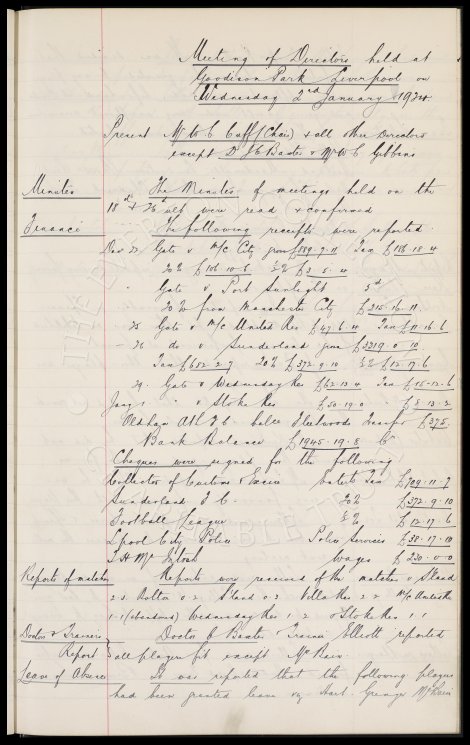 Meeting of Directors held at
Goodison Park Liverpool on
Wednesday 2nd January 1924.
Present Mr W C Cuff (Chair) & all other Directors
except Dr J C Baxter & Mr W C Gibbins
Minutes The Minutes of meetings held on the
18th & 26th ult were read & confirmed
Finance The following receipts were reported
Dec 22 Gate v M/c City gross £889-9-11 Tax £188-18-4
20% £106-10-6 ½% £3-5-4
" Gate v Port Sunlight
20% from Manchester City £215-16-11
- 26 Gate v M/c United Res £47-6-4 Tax £11-16-6
- 26 do v Sunderland gross £3319-0-10
Tax £682-2-7 20% £372-9-10 ½% £12-17-6
29 Gate v Wednesday Res £62-13-4 Tax £15-12-6
Jany 1 " v Stoke Res £50-19-0 " £8-13-2
Oldham Ath F C balce Fleetwoods Transfer £375
Bank Balance £1945-19-8
Cheques were signed for the following
Collector of Customs & Excise Enterts Tax £709-11-7
Sunderland F C 20% £372-9-10
Football League ½% £12-17-6
L'pool City Police Police Services £38-17-10
T H McIntosh Wages £230-0-0
Reports of matches Reports were received of the matches v S'land
2-3 Bolton 0-2 S'land 0-3 Villa Res 2-2 M/c United Res
1-1 (abandoned) Wednesday Res 1-2 & Stoke Res 1-1
Doctor & Trainers Doctor Baxter & Trainer Elliott reported
Report all players fit except McBain.
Leave of Absence It was reported that the following players
had been granted leave viz Hart. Grenyer McBain